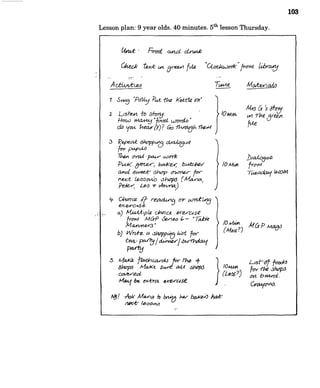 103
Lesson plan: 9 year olds. 40 minutes. 5th lesson Thursday.
Unit: Food and drink
Check Text in green file "Clockwork" from library
Activities Time Materials
1 Song 'Polly Put the Kettle on'
2 Listen to story.
How many 'food words'
do you hear (7)? Go through them
10 min
Mrs G's story
in the green
file
3 Repeat shopping dialogue
for pupils
Then oral pair work
Pick grocer, baker, butcher
and sweet shop owner for
next lesson's shops (Maria,
Peter, Leo +
10 min
Dialogue
from
Tuesday lesson
4 Choice of reading or writing
exercise
a) Multiple choice exercise
from MGP Series 6 - 'Table
Manners'
b) Write a shopping list for
tea party/dinner/birthday
party
10 min
(More?)
MGP mags
5 Make flashcards for the 4
shops Make sure all shops
covered
May be extra exercise
10 min
(Less?)
List of foods
for the shops
on board.
Crayons
NB! Ask Maria to bring her baker's hat
next lesson